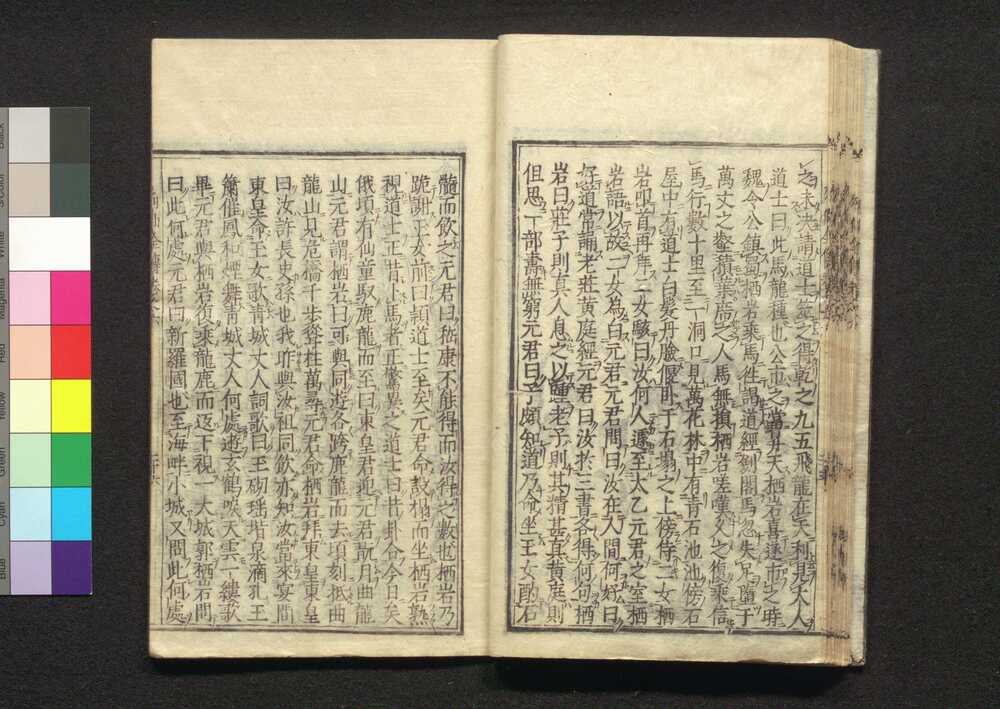 之未決請道士筮之得乾之九五飛龍在天利見大人
道士曰此馬龍種也公市之當昇天栖岩喜遂市之時
魏令公鎮蜀栖岩乘馬往謁道經劍閣馬忽失足墮于
萬丈之壑積葉席之人馬無損栖岩嗟嘆久之復乘信
馬行數十里至一洞口見萬花林中有青石池池傍石
屋中有道士白髮丹臉偃卧于石塌之上傍侍二女栖
岩叩首再拜二女駭曰汝何人遽至太乙元君之室栖
岩語以故二女為白元君元君問曰汝在人間何好曰
好道常誦老莊黄庭經元君曰汝於三書各得何句栖
岩曰莊子則真人息之以踵老子則其精甚真黄庭則
但思一部壽無窮元君曰子頗知道乃命坐玉女酌石
髓而飲之元君曰嵇康不能得而汝得之數也栖岩乃
跪謝玉女前曰頴道士至矣元君命設榻而坐栖岩熟
視道士正昔上馬者正驚異之道士曰昔卦今日矣
俄頃有仙童馭鹿龍而至曰東皇君迎元君翫月曲龍
山元君謂栖岩曰可與同遊各跨鹿龍而去頃刻抵曲
龍山見危橋千步聳柱萬尋元君命栖岩拜東皇東皇
曰汝許長史孫也我昨與汝祖同飲亦知汝當來宴間
東皇命玉女歌青城丈人詞歌曰玉砌瑤堦泉滴乳玉
簫催鳳和煙舞青城丈人何處遊玄鶴唳天雲一縷歌
畢元君與栖岩復乘龍鹿而返下視一大城郭栖岩問
曰此何處元君曰新羅國也至海畔小城又問此何處